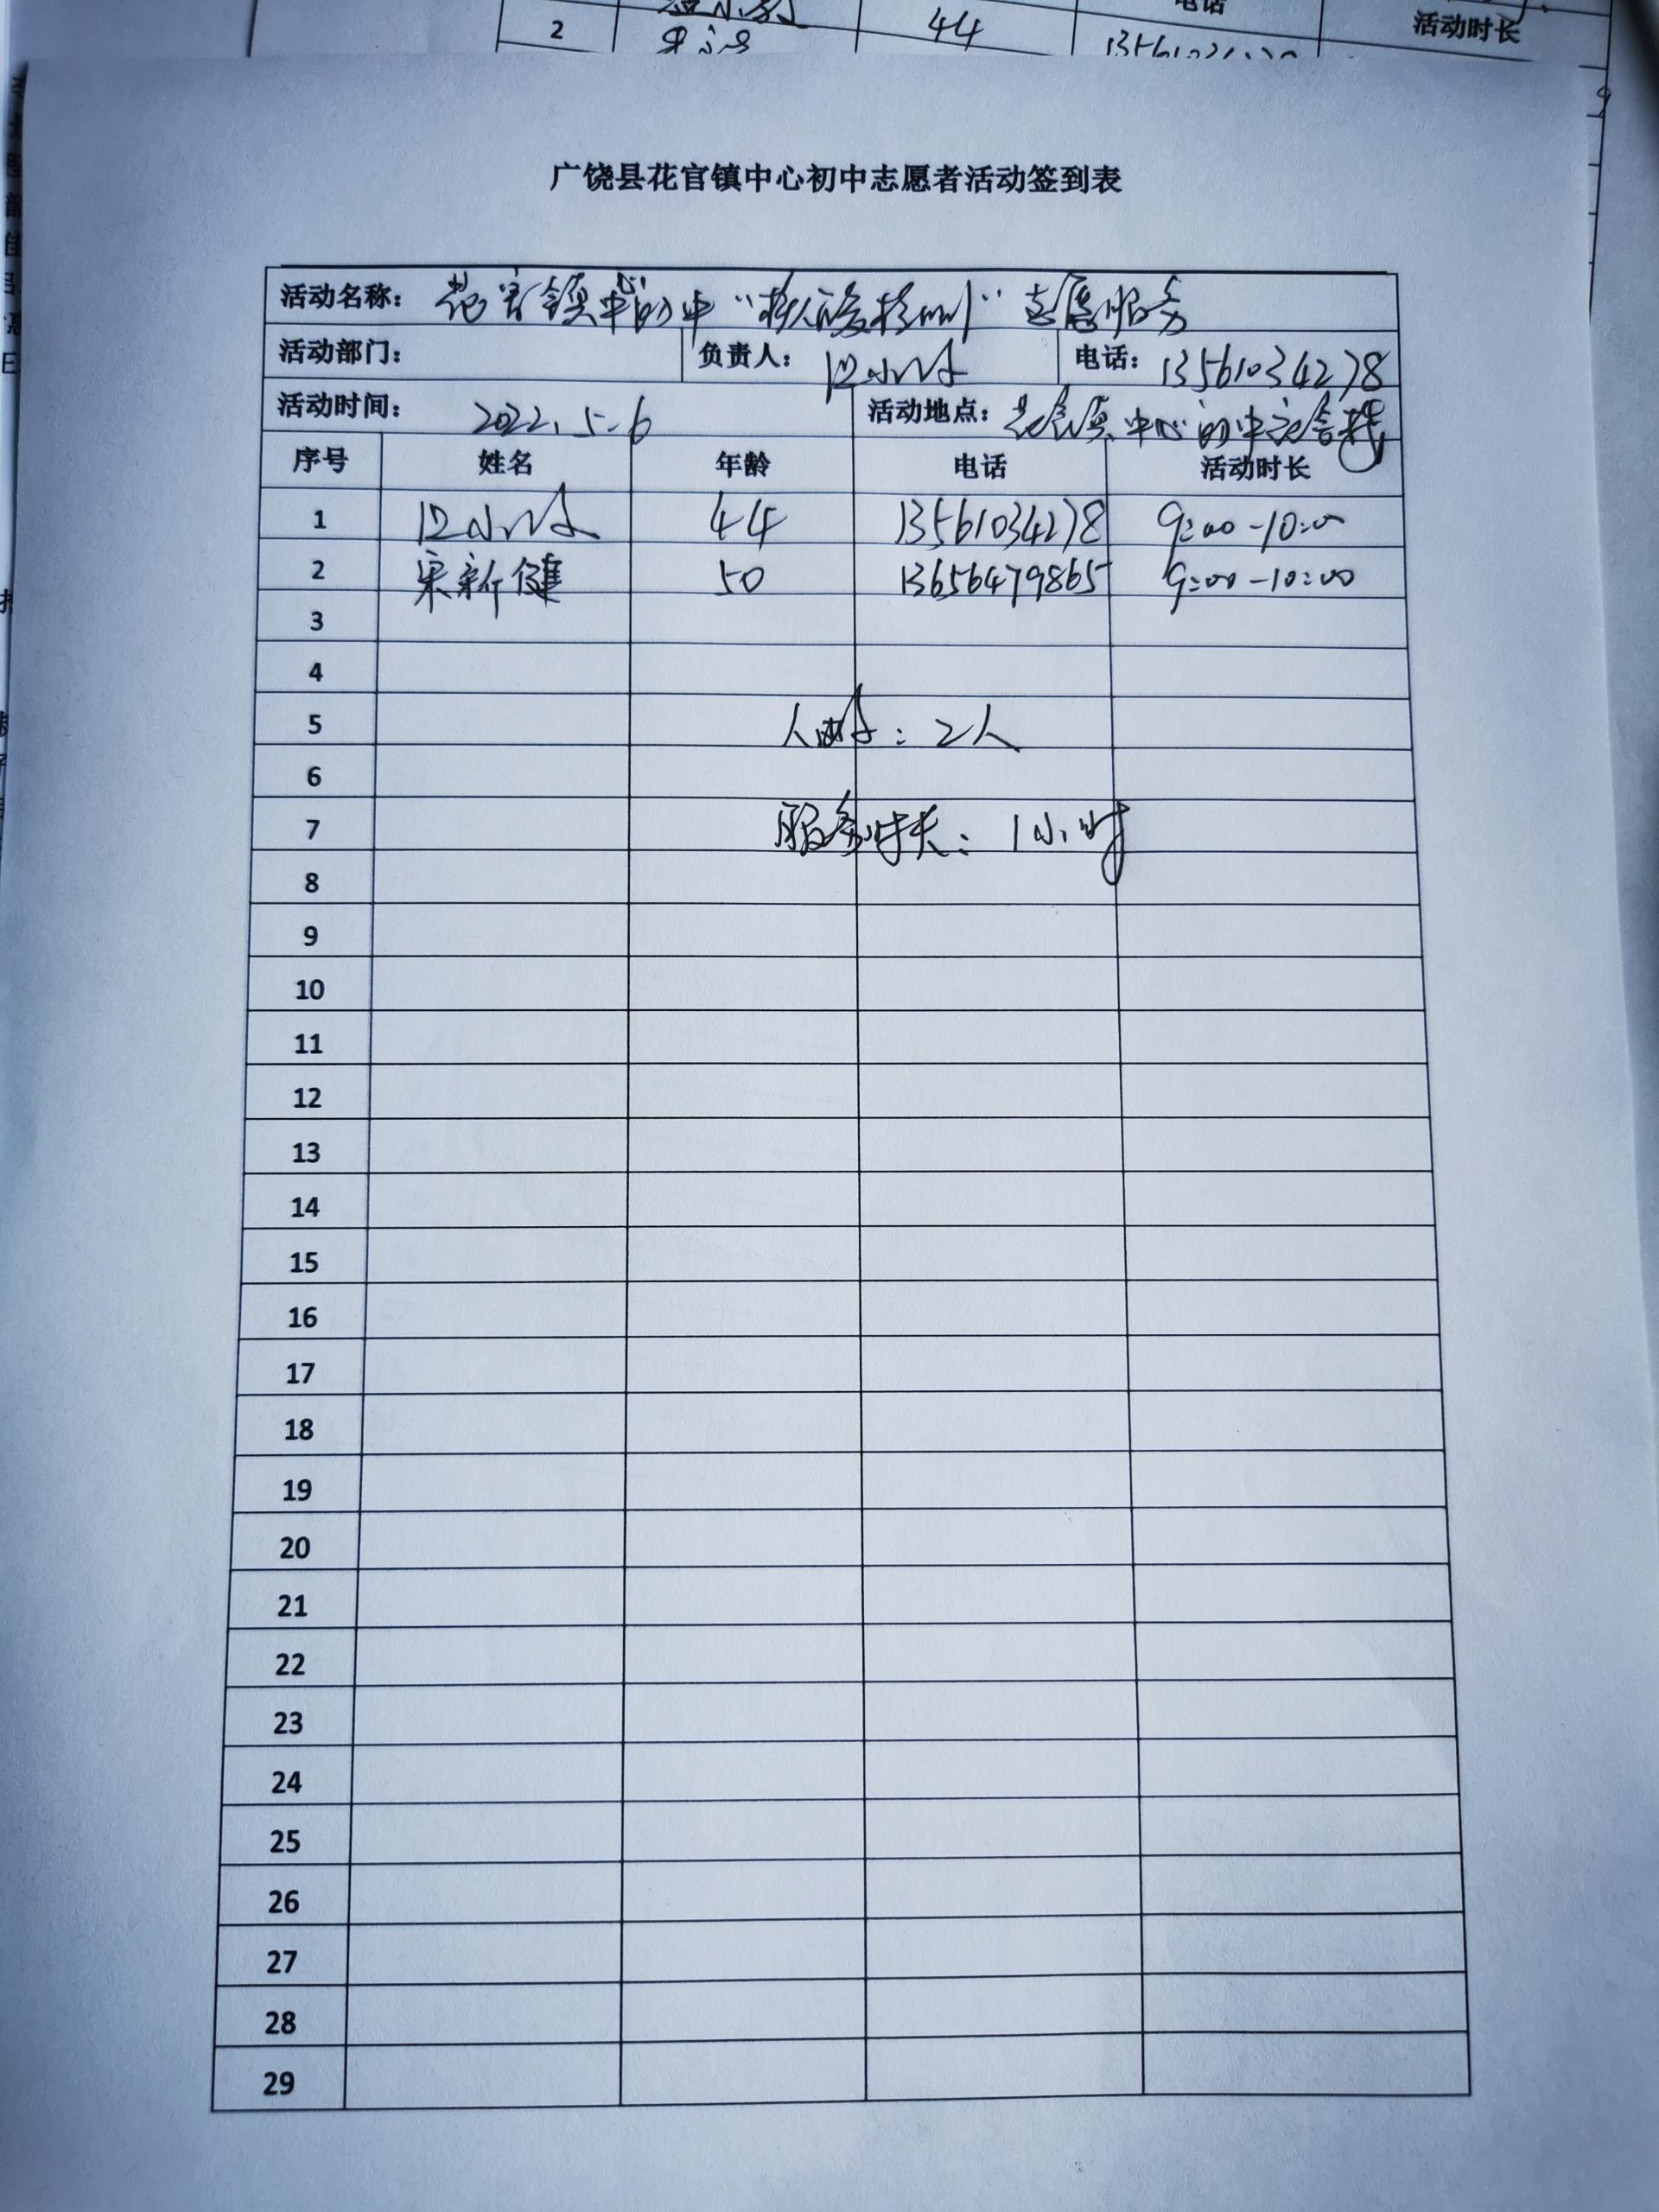 2 44 电话 活动时长
广饶县花官镇中心初中志愿者活动签到表
活动名称: 花官镇中心初中 “核酸检测” 志愿服务
活动部门: 负责人: 电话: 13561034278
活动时间: 2022.5.6 活动地点: 花官镇中心初中宿舍楼
序号 姓名 年龄 电话 活动时长
1 44 13561034278 9:00-10:00
2 宋新健 50 13656479865 9:00-10:00
3
4
5 人数: 2人
6
7 服务时长: 1小时
8
9
10
11
12
13
14
15
16
17
18
19
20
21
22
23
24
25
26
27
28
29